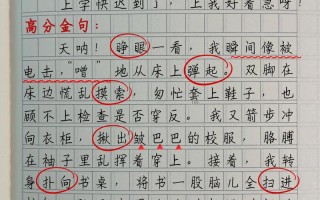 上学快迟到了，上我好着急呀！
高分金句：
天呐！睁眼一看，我瞬间像被
电击，“噌”地从床上弹起。双脚在
床边慌乱摸索，匆忙套上鞋子，也
顾不上检查是否穿反。我又箭步冲
向衣柜，揪出皱巴巴的校服，胳膊
在袖子里乱挥着穿上。接着，我转
身扑向书桌，将书一股脑儿全扫进